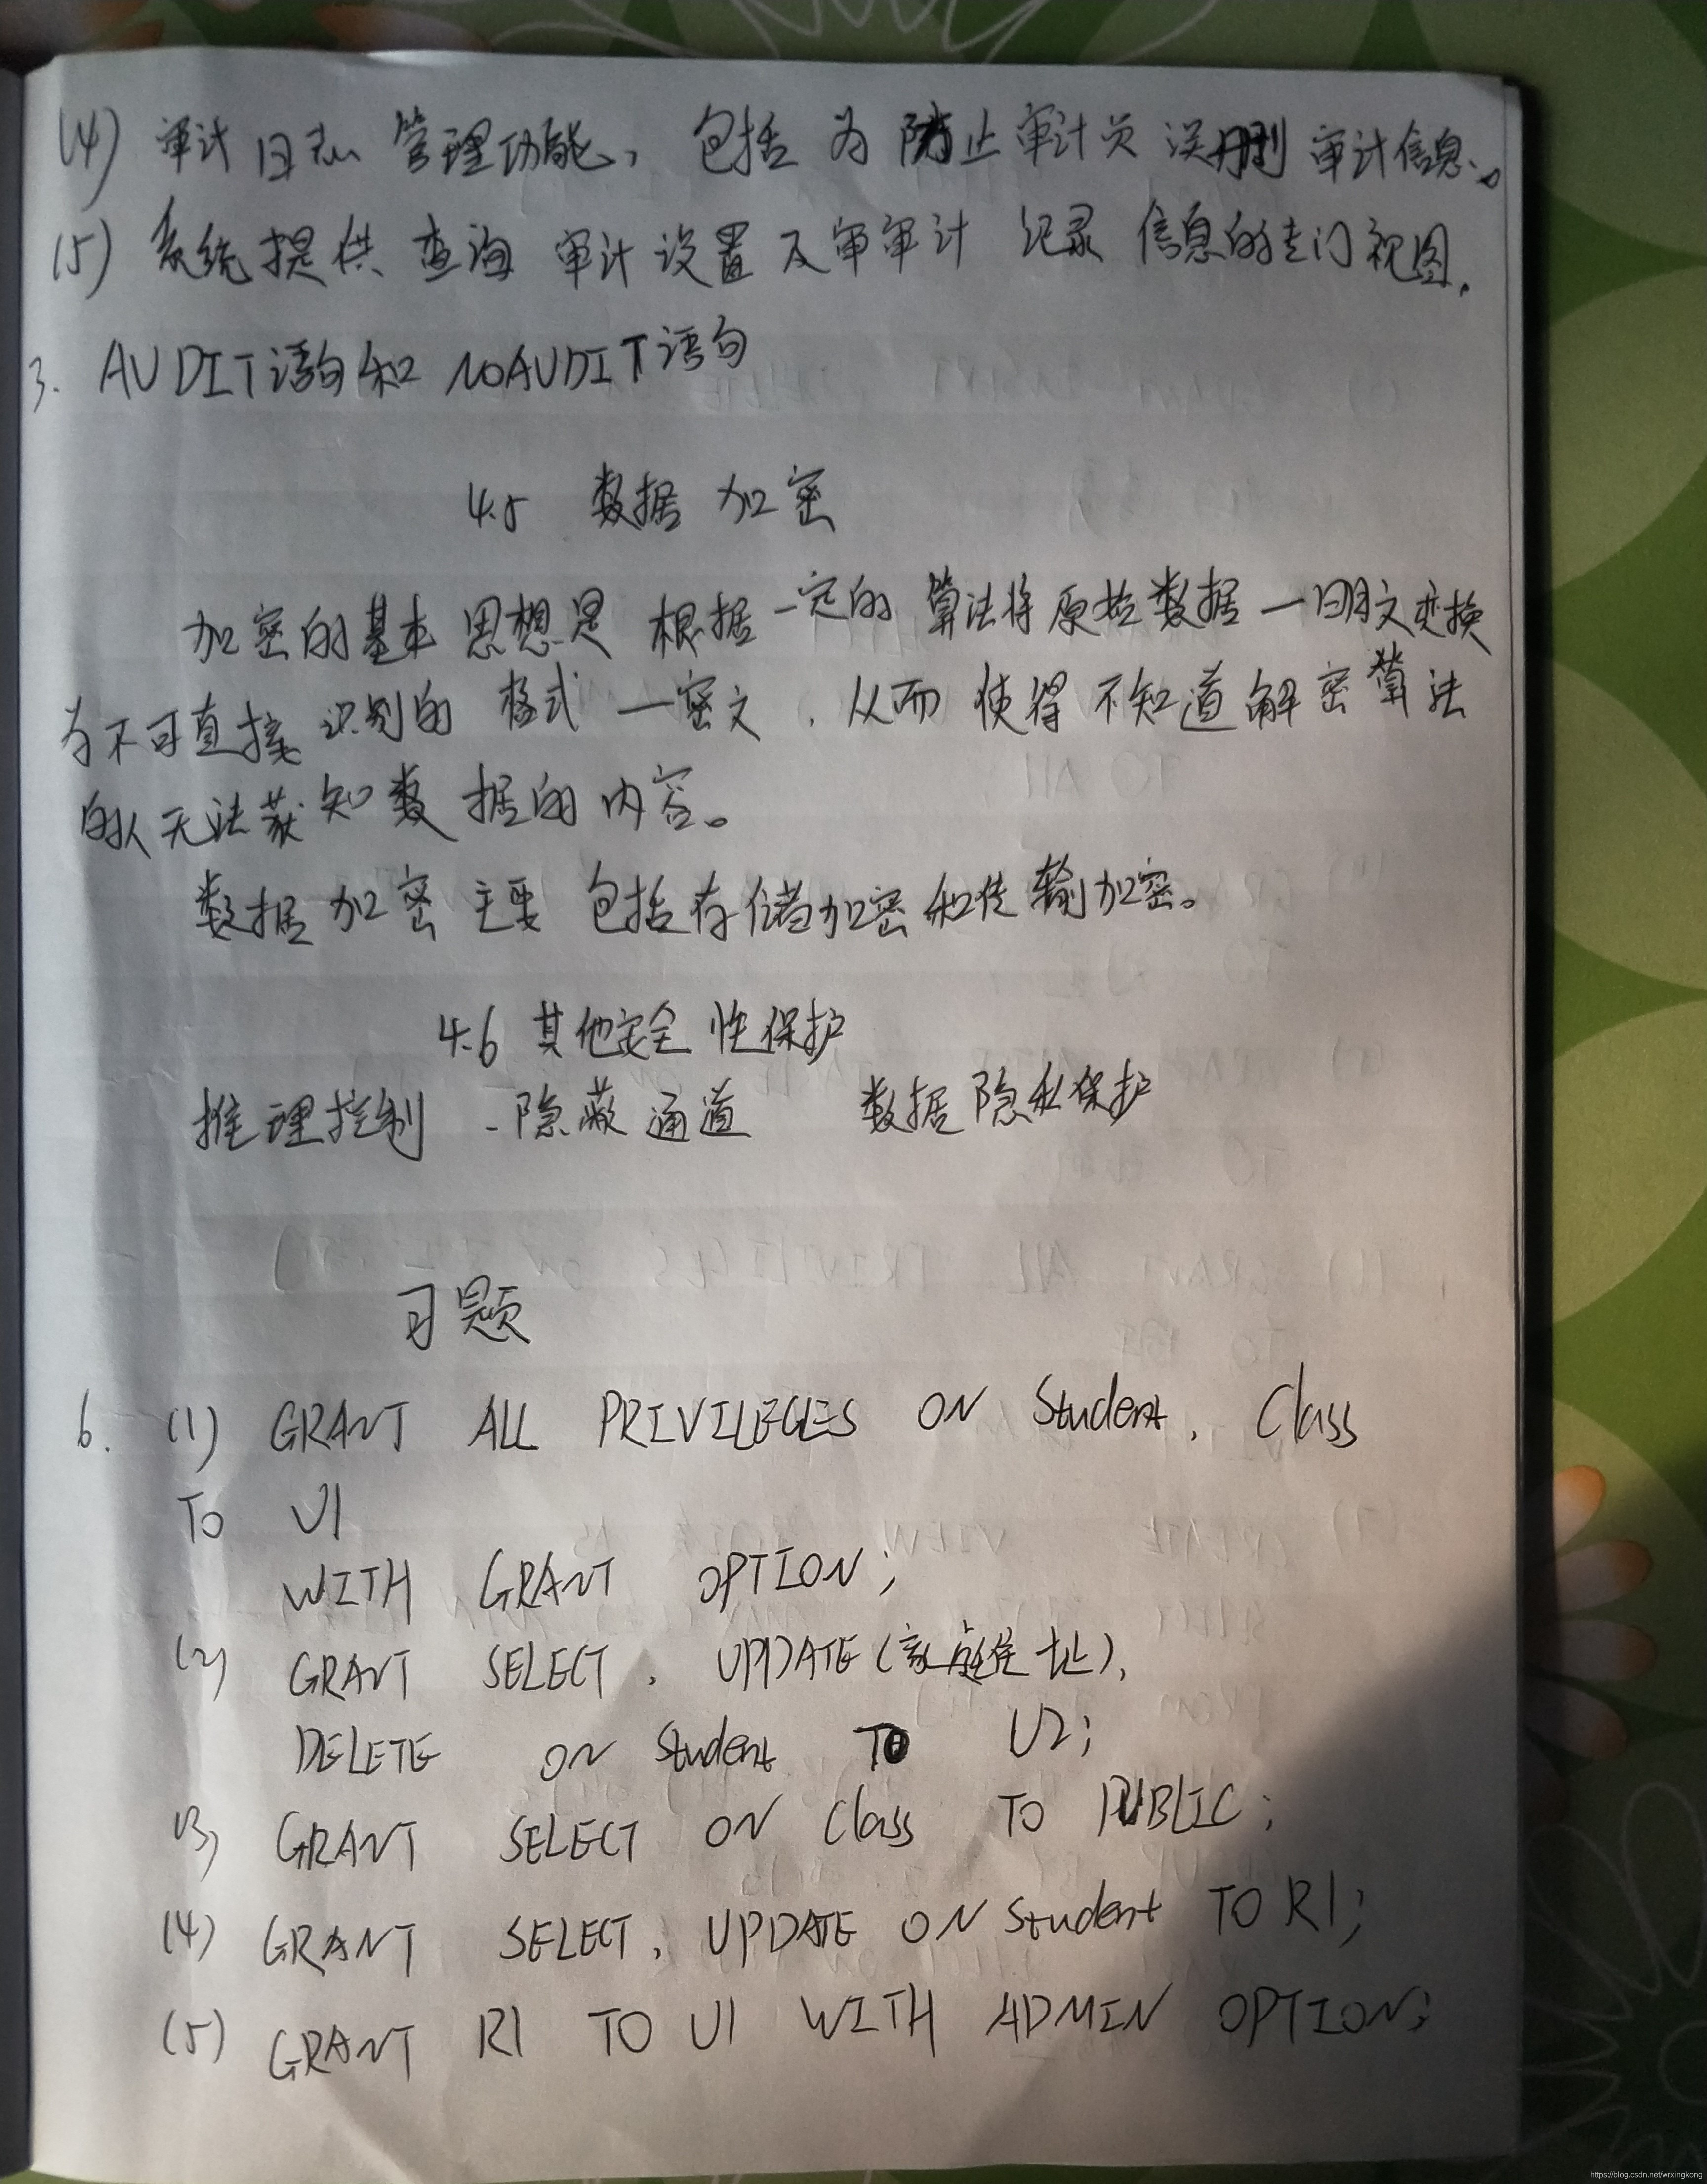 (4) 审计日志管理功能，包括为防止审计员误删审计信息。
(5) 系统提供查询审计设置及审审计记录信息的专门视图.
3. AUDIT语句和NOAUDIT语句
4.5 数据加密
加密的基本思想是根据一定的算法将原始数据—明文变换
为不可直接识别的格式—密文，从而使得不知道解密算法
的人无法获知数据的内容。
数据加密主要包括存储加密和传输加密。
4.6 其他安全性保护
推理控制 - 隐蔽通道 数据隐私保护
习题
6. (1) GRANT ALL PRIVILEGES ON Student, Class
TO U1
WITH GRANT OPTION;
(2) GRANT SELECT, UPDATE(家庭住址),
DELETE ON Student TO U2;
(3) GRANT SELECT ON Class TO PUBLIC;
(4) GRANT SELECT, UPDATE ON Student TO R1;
(5) GRANT R1 TO U1 WITH ADMIN OPTION;
https://blog.csdn.net/wrxingkong